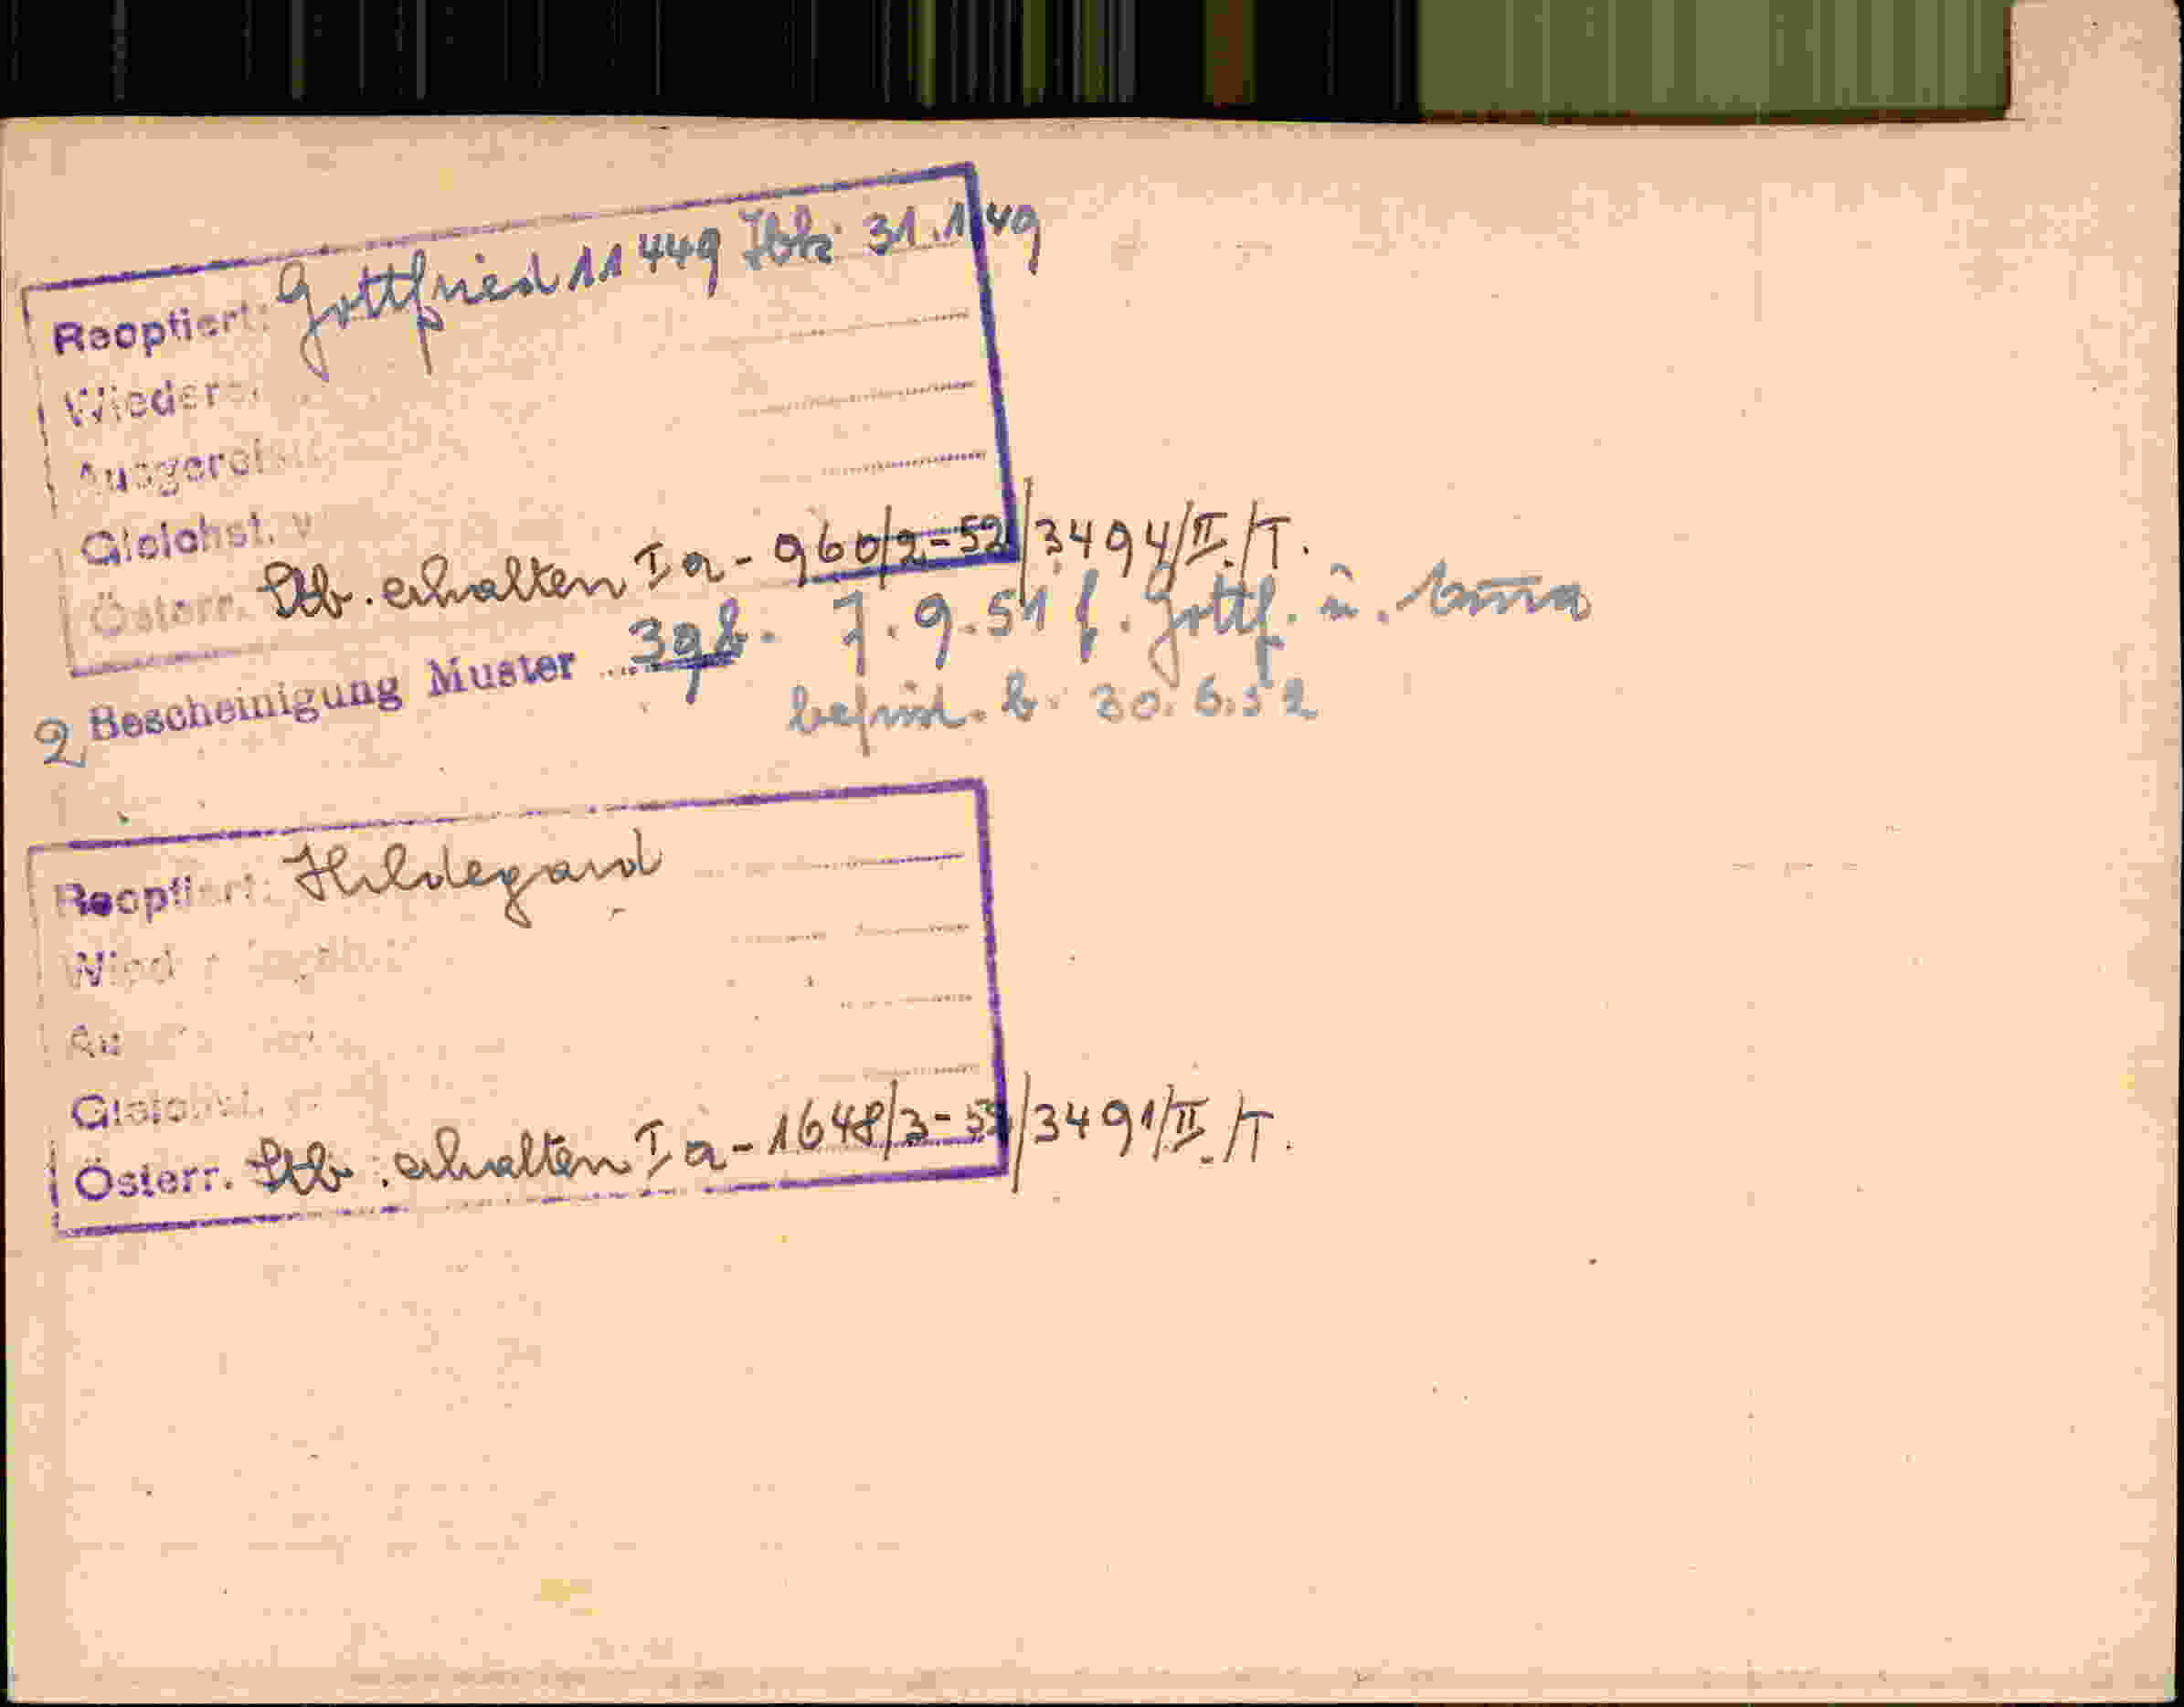 Reoptiert: Gottfried 11 449 Ibk 31.1.49
Wieder
Ausgereist
Gleichst. v
Österr. Stb. erhalten I a - 960/2-52/3494/II./T.
2 Bescheinigung Muster 39b. 7.9.51 f. Gottf. u. Anna
befrist. b. 30.6.52
Reoptiert: Hildegard
Wied
Au
Gleichst.
Österr. Stb. erhalten I a - 1648/3-52/3491/II./T.